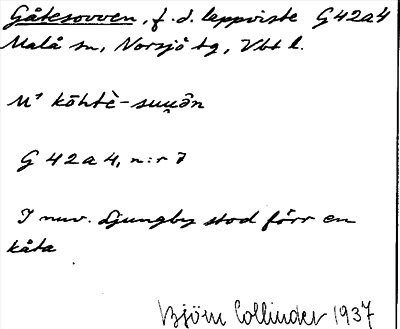 Gåtesovven, f. d. lappviste G 42a4
Malå sn, Norsjö tg, Vbt l.
M¹ kōhtè-suu̯ə̑n
G 42 a 4, n:r 7
I nuv. Ljungby stod förr en
kåta
Björn Collinder 1937